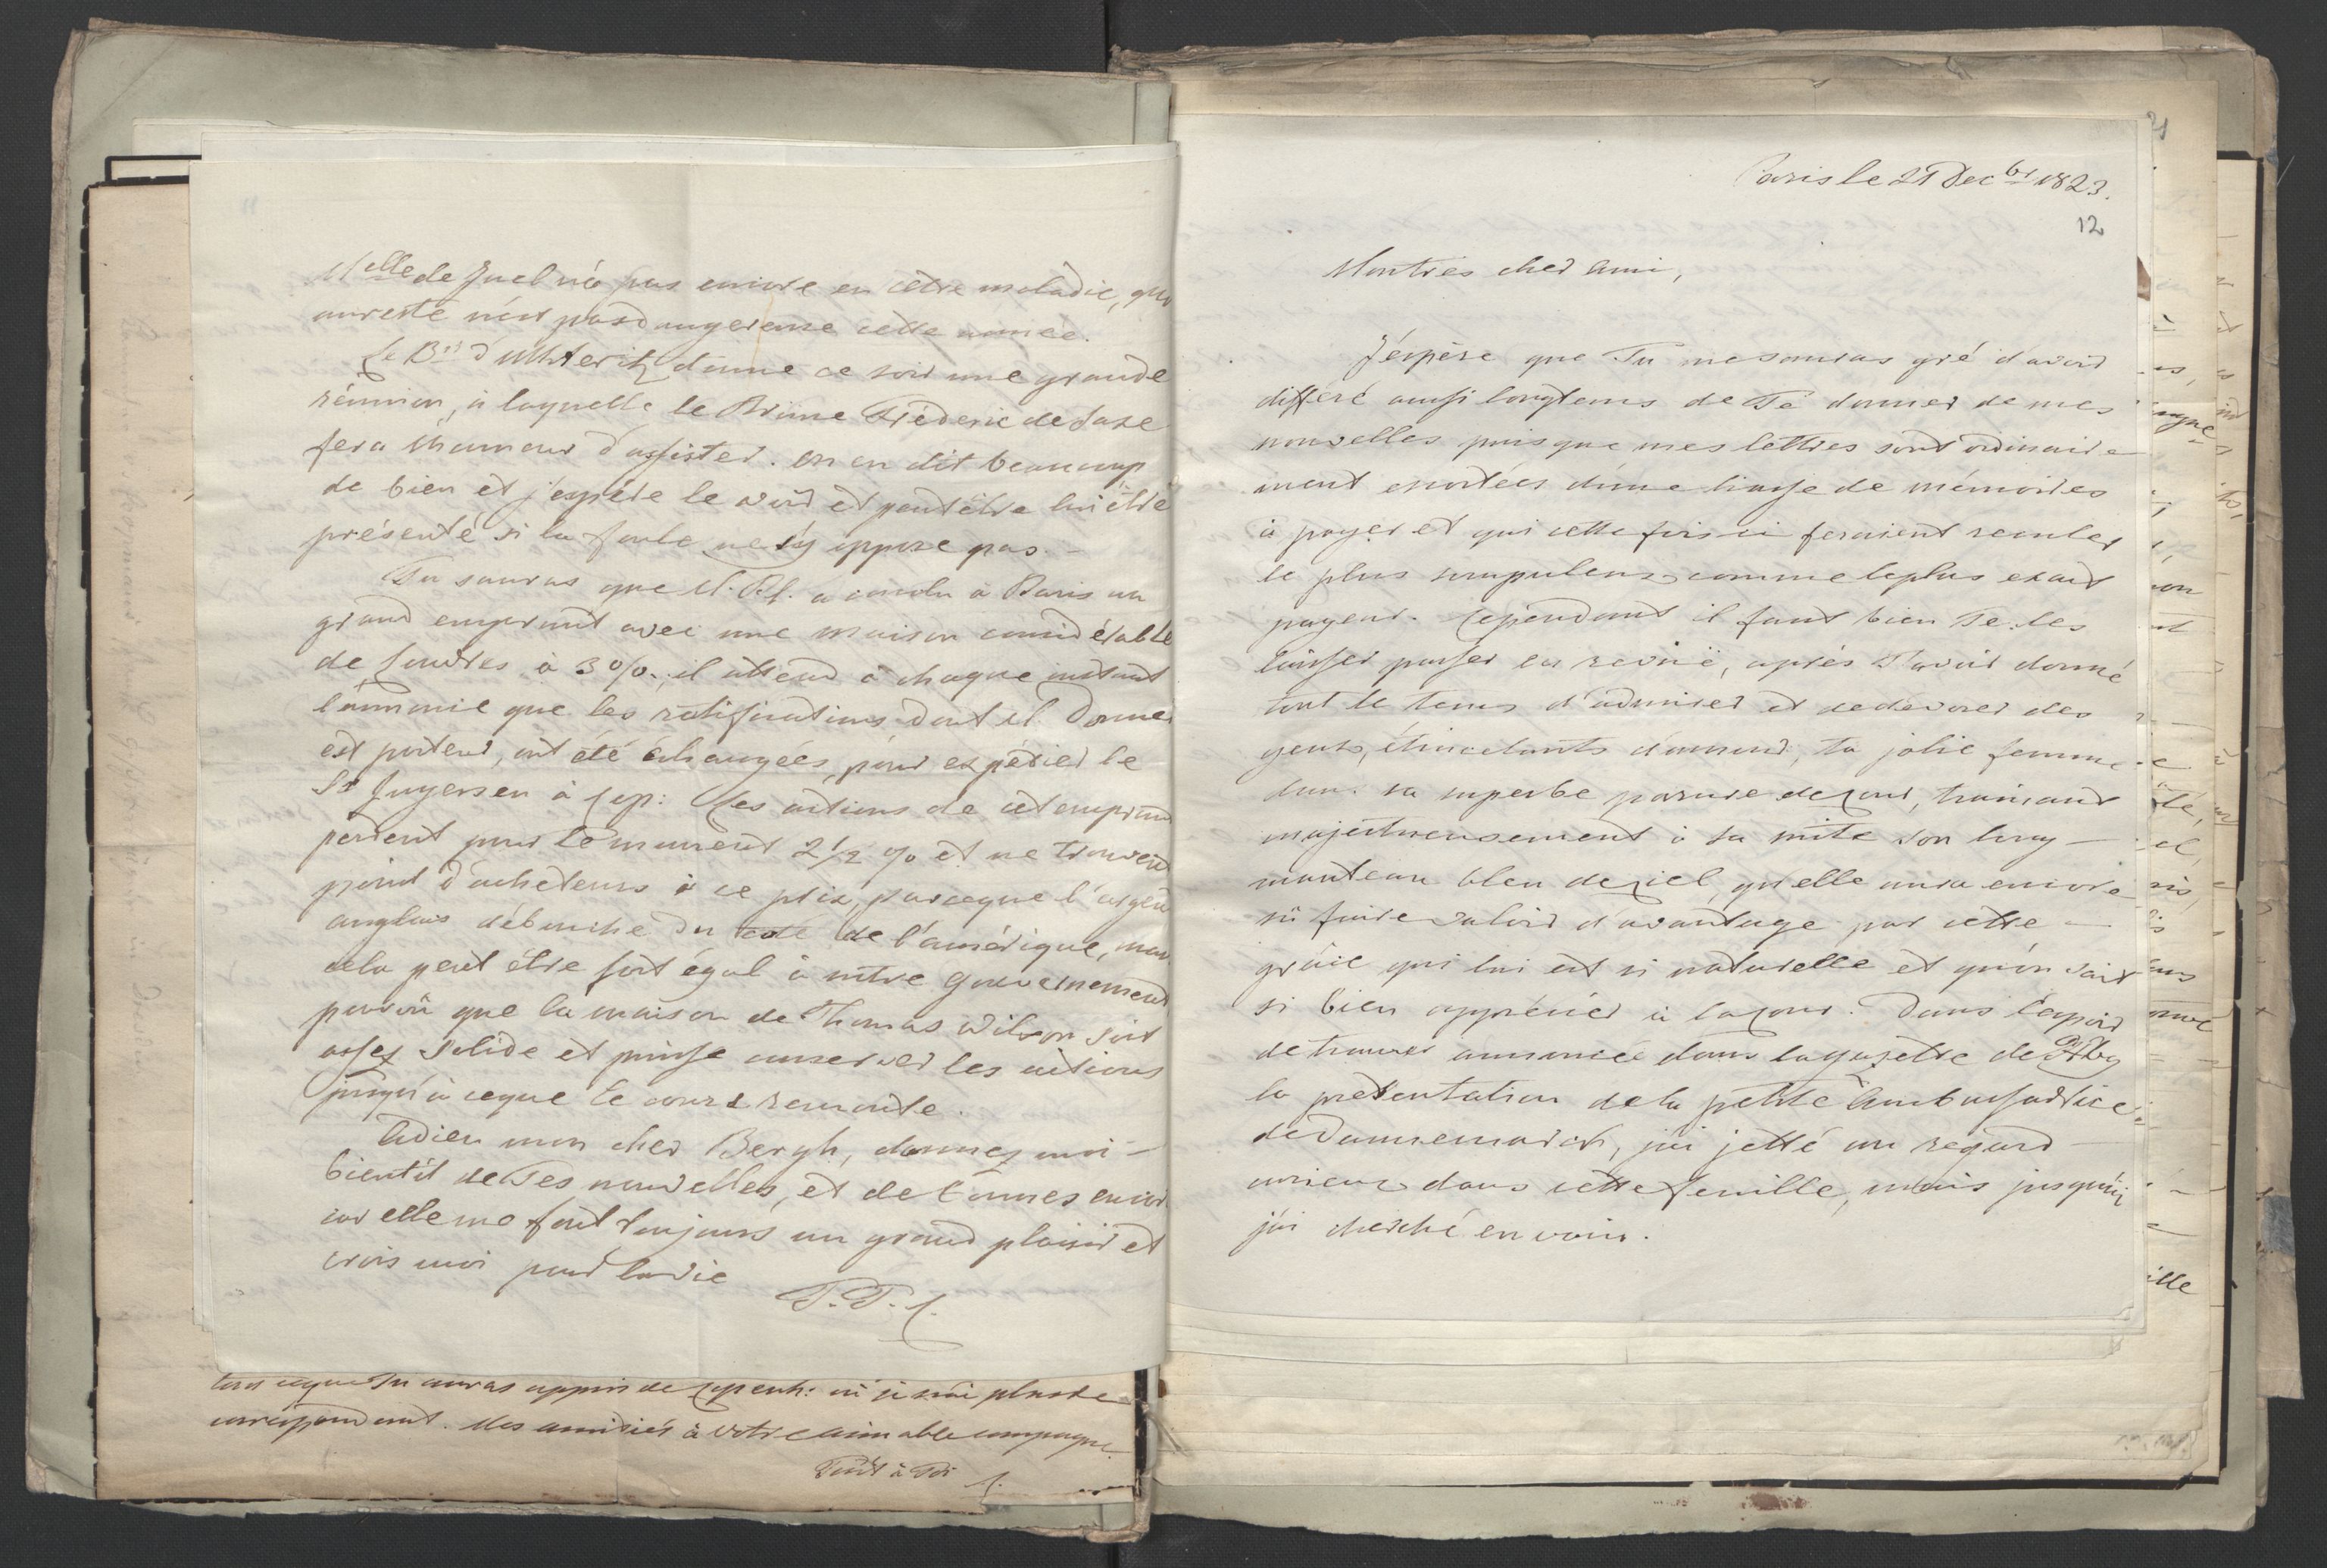 Melle de Juel n'a pas encore eu cette maladie, qui
aureste n'est pas dangereuse cette année.
Le Bn d'Uchteritz donne ce soir une grande
réunion, à laquelle le Prince Fréderic de Saxe
fera l'honneur d'assister. on en dit beaucoup
de bien et j'espére le voir et peutêtre lui être
présenté si la foule ne s'y oppose pas. –
Tu sauras que M. Bl. a conclu à Paris un
grand emprunt avec une maison considérable
de Londres à 3%., il attend à chaque instant
l'annonce que les ratifications dont M. Donner
est porteur, ont été échangées, pour expédier le
Sr Jugersen à Cop: Les actions de cet emprunt
perdent pour le moment 2 1/2 % et ne trouvent
point d'acheteurs à ce prix, parceque l'argent
anglais débouche du coté de l'amérique, mais
cela peut être fort égal à notre Gouvernement
pourvû que la maison de Thomas Wilson soit
assez solide et puisse conserver les actions
jusqu'à ceque le cours remonte.
Adieu mon cher Bergh, donnez moi –
bientôt de Tes nouvelles, et de bonnes encore
car elle me font toujours un grand plaisir et
crois moi pour la vie
T. T. C.
tout ceque Tu auras appris de Copenh: où je n'ai plus de
correspondant. Mes amitiés à votre aimable compagne
Tout à Toi
C.
Paris le 21 Decbr 1823.
12
Mon très cher ami,
J'éspère que Tu me sauras gré d'avoir
différé aussi longtems de Te donner de mes
nouvelles puisque mes lettres sont ordinaire-
ment escortées d'une liasse de mémoires
à payer et qui cette fois ci feraient reculer
le plus scrupuleux, comme le plus exact
payeur. Cependant il faut bien Te les
laisser passer en revüe, après T'avoir donné
tout le tems d'admirer et de dévorer des
yeux, étincelants d'amour, ta jolie femme
dans sa superbe parure de Cour, trainant
majestueusement à sa suite son long –
manteau bleu de ciel, qu'elle aura encore
sû faire valoir d'avantage par cette –
grâce qui lui est si naturelle et qu'on sait
si bien apprécier à la Cour. Dans l'espoir
de trouver annoncée dans la gazette de Ptbg
la présentation de la petite Ambassadrice
de Dannemarck, j'ai jetté un regard –
curieux dans cette feuille, mais jusqu'ici
j'ai cherché en vain.